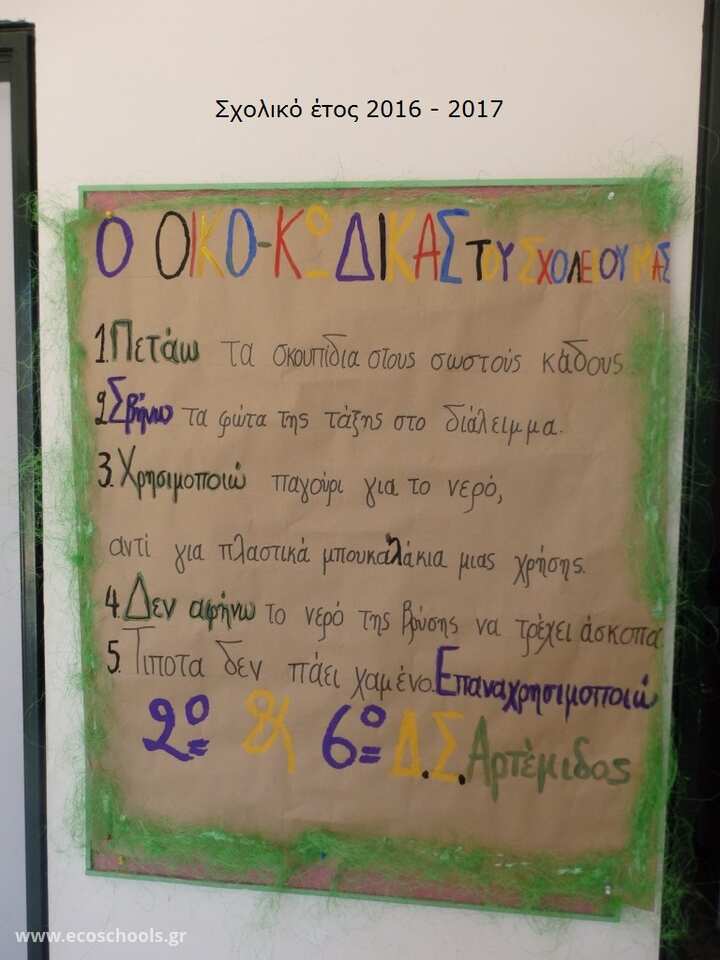 Σχολικό έτος 2016 - 2017
Ο ΟΙΚΟ-ΚΩΔΙΚΑΣ ΤΟΥ ΣΧΟΛΕΙΟΥ ΜΑΣ
1. Πετάω τα σκουπίδια στους σωστούς κάδους.
2. Σβήνω τα φώτα της τάξης στο διάλειμμα.
3. Χρησιμοποιώ παγούρι για το νερό,
αντί για πλαστικά μπουκαλάκια μιας χρήσης.
4. Δεν αφήνω το νερό της βρύσης να τρέχει άσκοπα
5. Τίποτα δεν πάει χαμένο. Επαναχρησιμοποιώ
2ο & 6ο Δ.Σ. Αρτέμιδος
www.ecoschools.gr